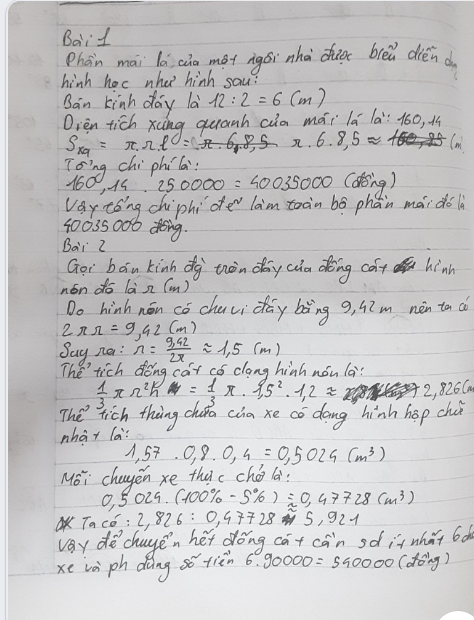 Bài 1
Phần mái lá của một ngôi nhà được biểu diễn dạng
hình học như hình sau:
Bán kính đáy là 12 : 2 = 6 (m)
Diện tích xung quanh của mái lá là: 160,14
Sxq = π.r.l = π.6.8,5 π.6.8,5 ≈ (m
Tổng chi phí là:
160,14 . 250000 = 40035000 (đồng)
Vậy tổng chi phí để làm toàn bộ phần mái đó là
40035000 đồng.
Bài 2
Gọi bán kính đg tròn đáy của đống cát hình
nón đó là r (m)
Do hình nón có chu vi đáy bằng 9,42 m nên ta có
2πr = 9,42 (m)
Suy ra: r = 9,42/2π ≈ 1,5 (m)
Thể tích đống cát có dạng hình nón là:
1/3 π r²h = 1/3 π . 1,5² . 1,2 ≈ 2,826 (m
Thể tích thùng chứa của xe có dạng hình hộp chữ
nhật là:
1,57 . 0,8 . 0,4 = 0,5024 (m³)
Mỗi chuyến xe thực chở là:
0,5024 . (100% - 5%) = 0,47728 (m³)
Ta có : 2,826 : 0,47728 ≈ 5,921
Vậy để chuyển hết đống cát cần sd ít nhất 6
xe và ph dùng số tiền 6.90000 = 540000 (đồng)